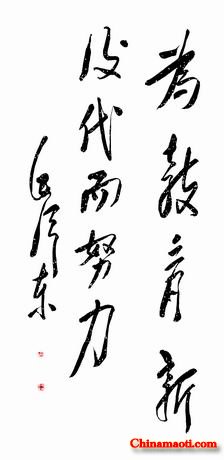 為教育新
後代而努力
毛澤東
Chinamaoti.com